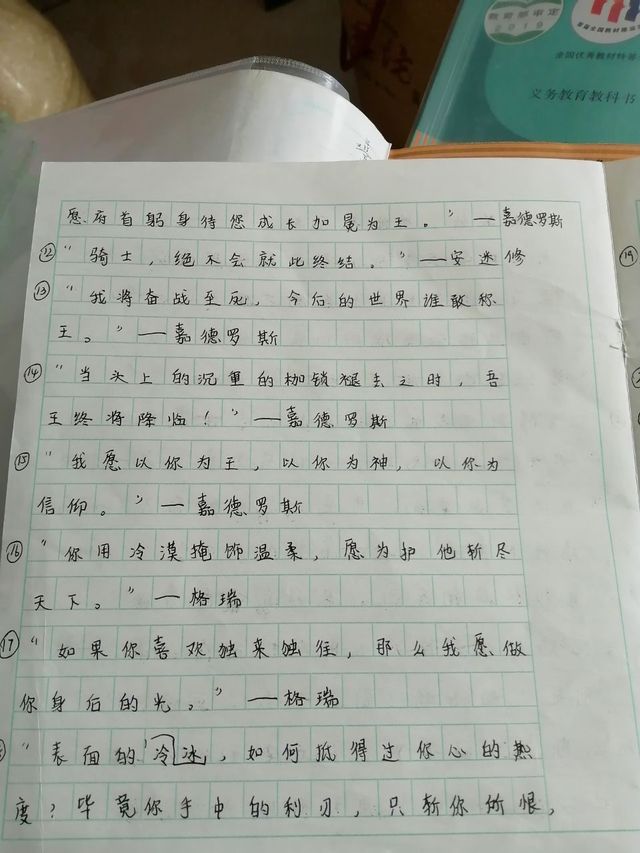 教育部审定
2019
全国优秀教材特等
义务教育教科书
愿府首躬身待您成长加冕为王。”——嘉德罗斯
⑫“骑士，绝不会就此终结。”——安迷修
⑬“我将奋战至死，今后的世界谁敢称
王。”——嘉德罗斯
⑭“当头上的沉重的枷锁褪去之时，吾
王终将降临！”——嘉德罗斯
⑮“我愿以你为王，以你为神，以你为
信仰。”——嘉德罗斯
⑯“你用冷漠掩饰温柔，愿为护他斩尽
天下。”——格瑞
⑰“如果你喜欢独来独往，那么我愿做
你身后的光。”——格瑞
“表面的冷冰，如何抵得过你心的热
度？毕竟你手中的利刃，只斩你所恨，
⑲